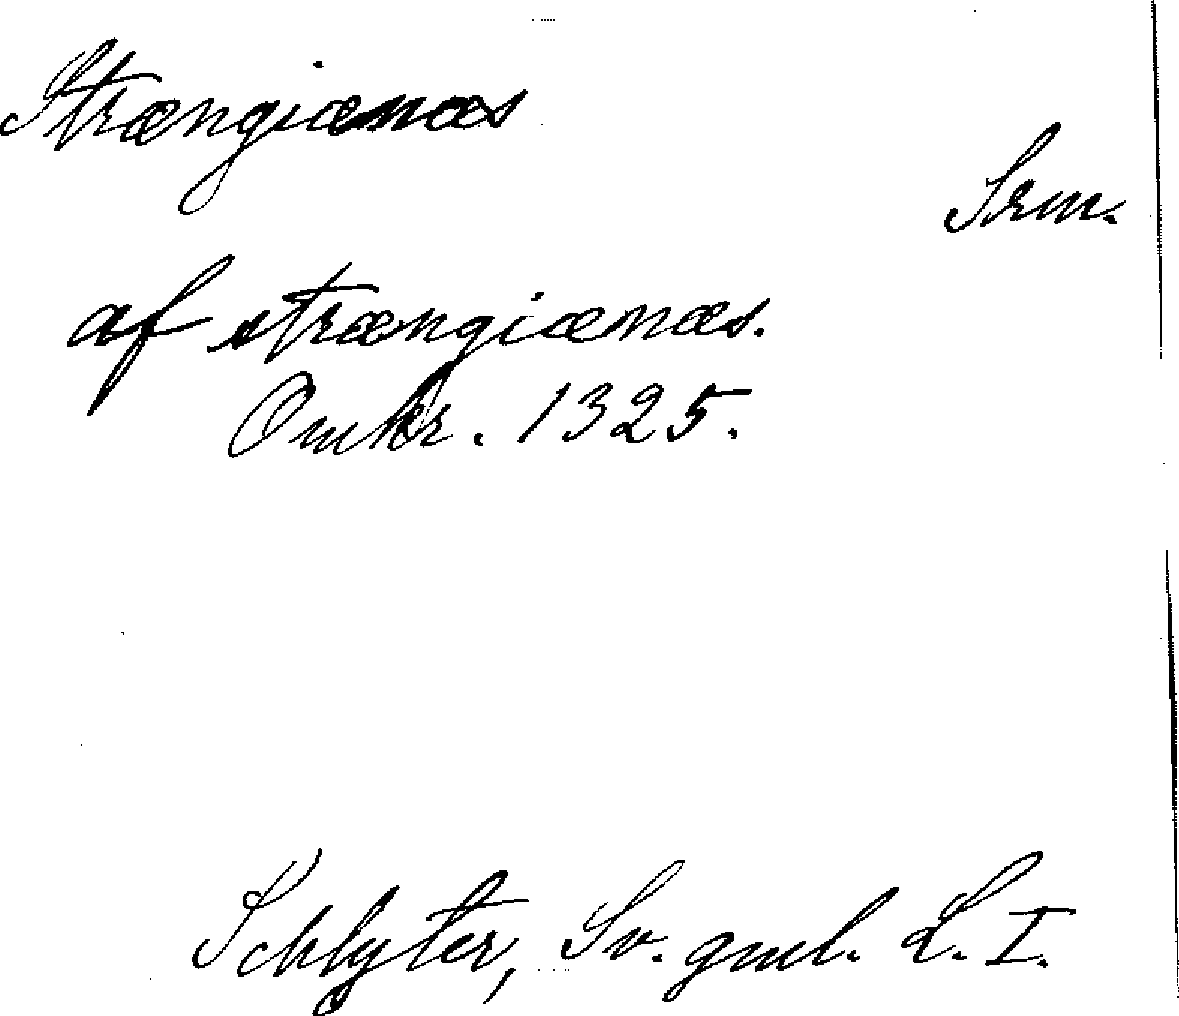 Strængiænæs
Srm.
af strængiænæs.
Omkr. 1325.
Schlyter, Sv. gml. L. I.